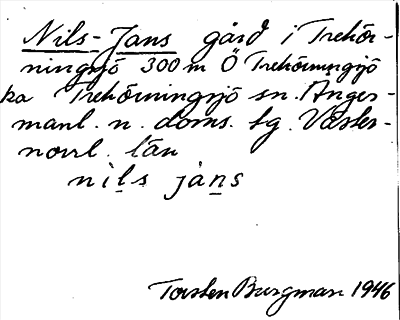 Nils-Jans gård i Trehör-
ningsjö 300 m Ö Trehörningsjö
ka Trehörningsjö sn. Ånger-
manl. n. doms. tg. Väster-
norrl. län
nils jans
Torsten Burgman 1946